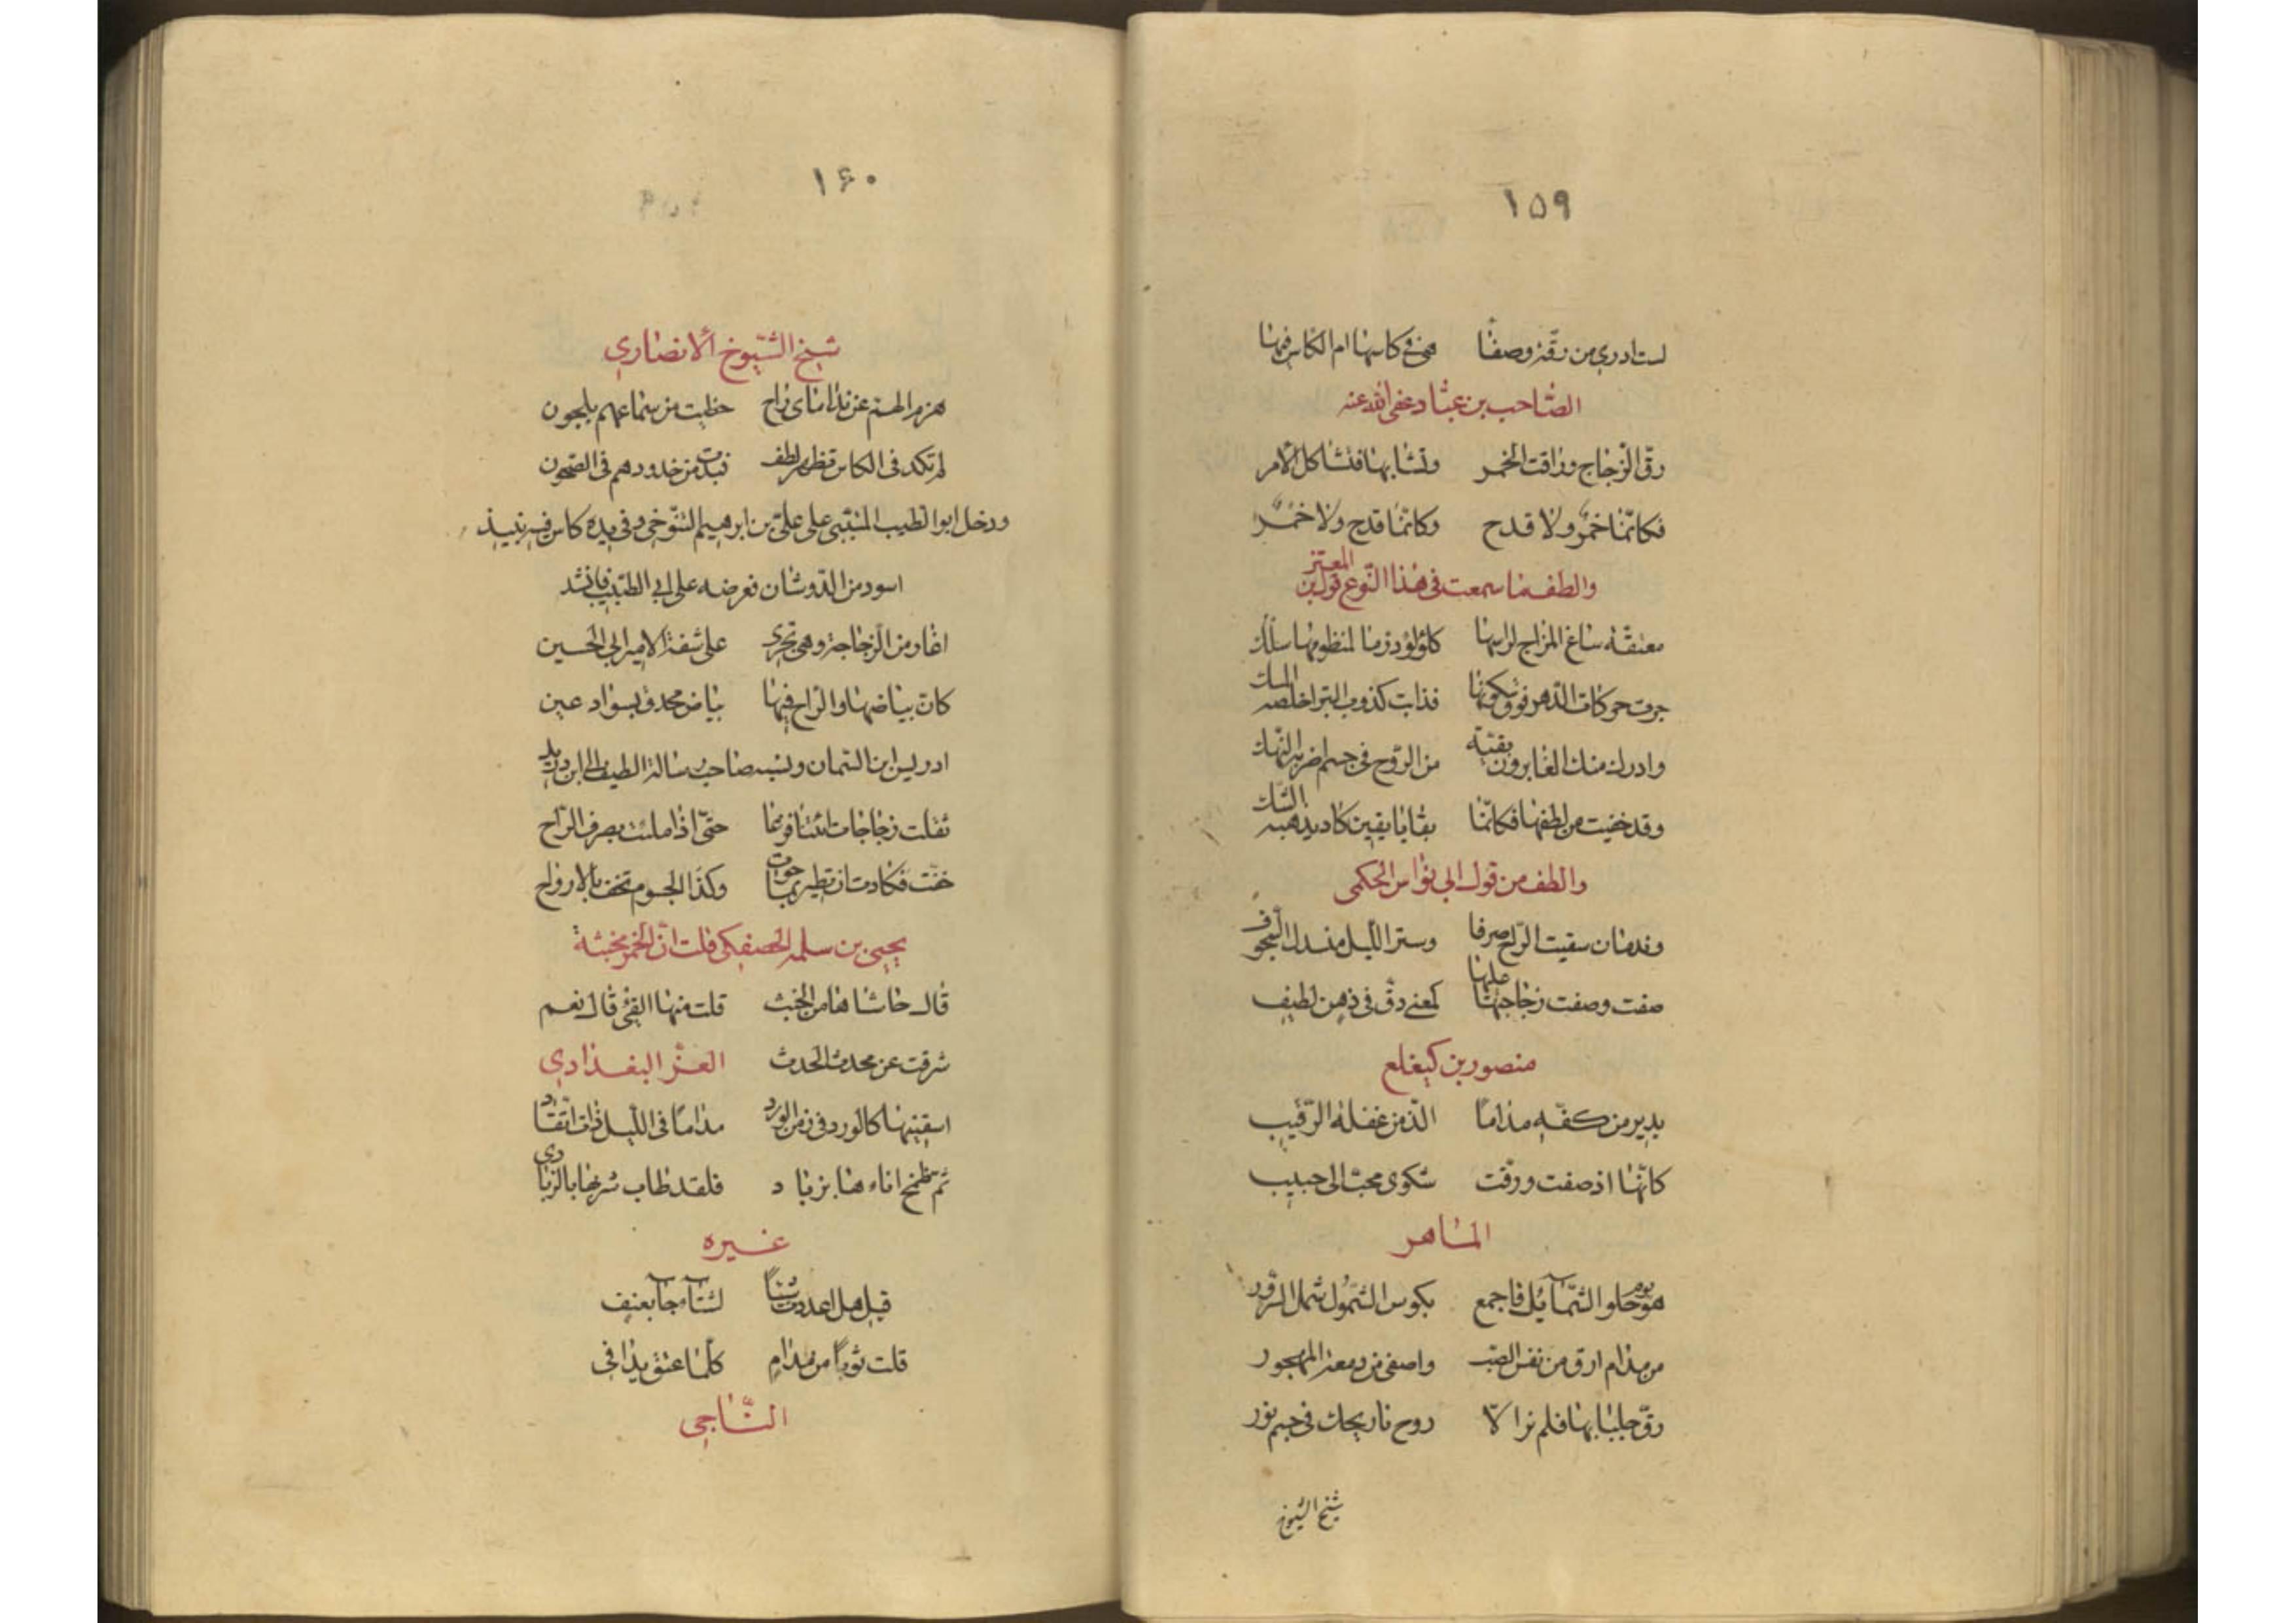 ١۵٩
لست ادري من رقّة وصفا هي في كاسها ام الكاس فيها
الصّاحب بن عبّاد عفى الله عنه
رقّ الزّجاج وراقت الخمر وتشابها فتشاكل الأمر
فكانّما خمر ولا قدح وكانّما قدح ولا خمر
والطف ما سمعت في هذا النّوع قول بن المعتز
معتقة ساغ المزاج لراسها كلؤلؤ در ما لمنظومها سلك
جرت حركات الدّهر فوق سكونها فذابت كذوب التبر اخلصه السبك
وادرك منك الغابرون بقيّة من الرّوح في جسم اضر به النّهك
وقد خفيت من لطفها فكانّما بقايا يقين كاد يذهبه الشّك
والطف من قول ابي نواس الحكمي
وندمان سقيت الرّاح صرفا وستر اللّيل منسدل السّجوف
صفت وصفت زجاجتها عليها كمعنى دقّ في ذهن لطيف
منصور بن كيغلغ
يدير من كفّه مداما الذّ من غفلة الرّقيب
كانّها اذ صفت ورقّت شكوى محبّ الى حبيب
الماهر
هو يوم حلو الشّمآئل فاجمع بكوس الشّمول شمل السّرور
من مدام ارق من نفس الصّب واصفى من دمعة المهجور
رقّ جلبابها فلم نر الّا روح نار بجلّ في جسم نور
شيخ الشّيوخ
١۶٠
شيخ الشّيوخ الأنصاري
هزم الهم عن نداماي راح حظيت من سماعهم بلحون
لم تكد في الكاس تظهر لطف فبدت من خدودهم في الصّحون
ودخل ابو الطيب المتنبي على عليّ بن ابرهيم التنّوخي وفي يده كاس فيه نبيذ
اسود من الدّوشان فعرضه على ابي الطّيب فانشد
اغار من الزجاجة وهي تجري على شفة الامير ابي الحسين
كانّ بياضها والرّاح فيها بياض محدق بسواد عين
ادريس ابن اليمان ونسبه صاحب رسالة الطيف الى ابن دريد
ثقلت زجاجات اتتنا فرغا حتّى اذا ملئت بصرف الرّاح
خفّت فكادت ان تطير بما حوت وكذا الجسوم تخف بالارواح
يحيى بن سلمه الحصفكي قلت انّ الخمر مخبثة
قال حاشاها من الخبث قلت منها القئ قال نعم
شرفت عن محدث الحدث العزّ البغدادي
اسقنيها كالورد في زمن الورد مداما في اللّيل ذات اتّقاد
ثم ضمّخ اناءها بزباد فلقد طاب شربها بالزبادي
غيره
قيل هل اعددت شيئا لشتآء جآ بعنف
قلت ثوبا من مدام كلّما عتق يدافى
النّاجي